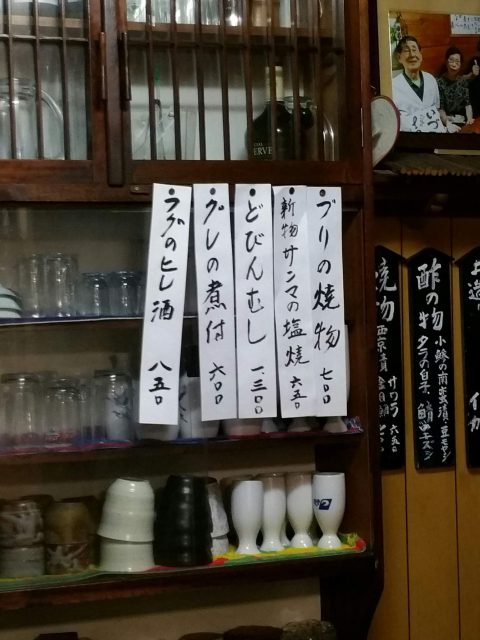 ブリの焼物 七〇〇
新物サンマの塩焼 六五〇
どびんむし 一、三〇〇
グレの煮付 六〇〇
フグのヒレ酒 八五〇
酢の物 小鯵の南蛮漬・豆モヤシ
タラの白子・鯛キズシ
焼物 西京漬 サワラ 六五〇
イカ